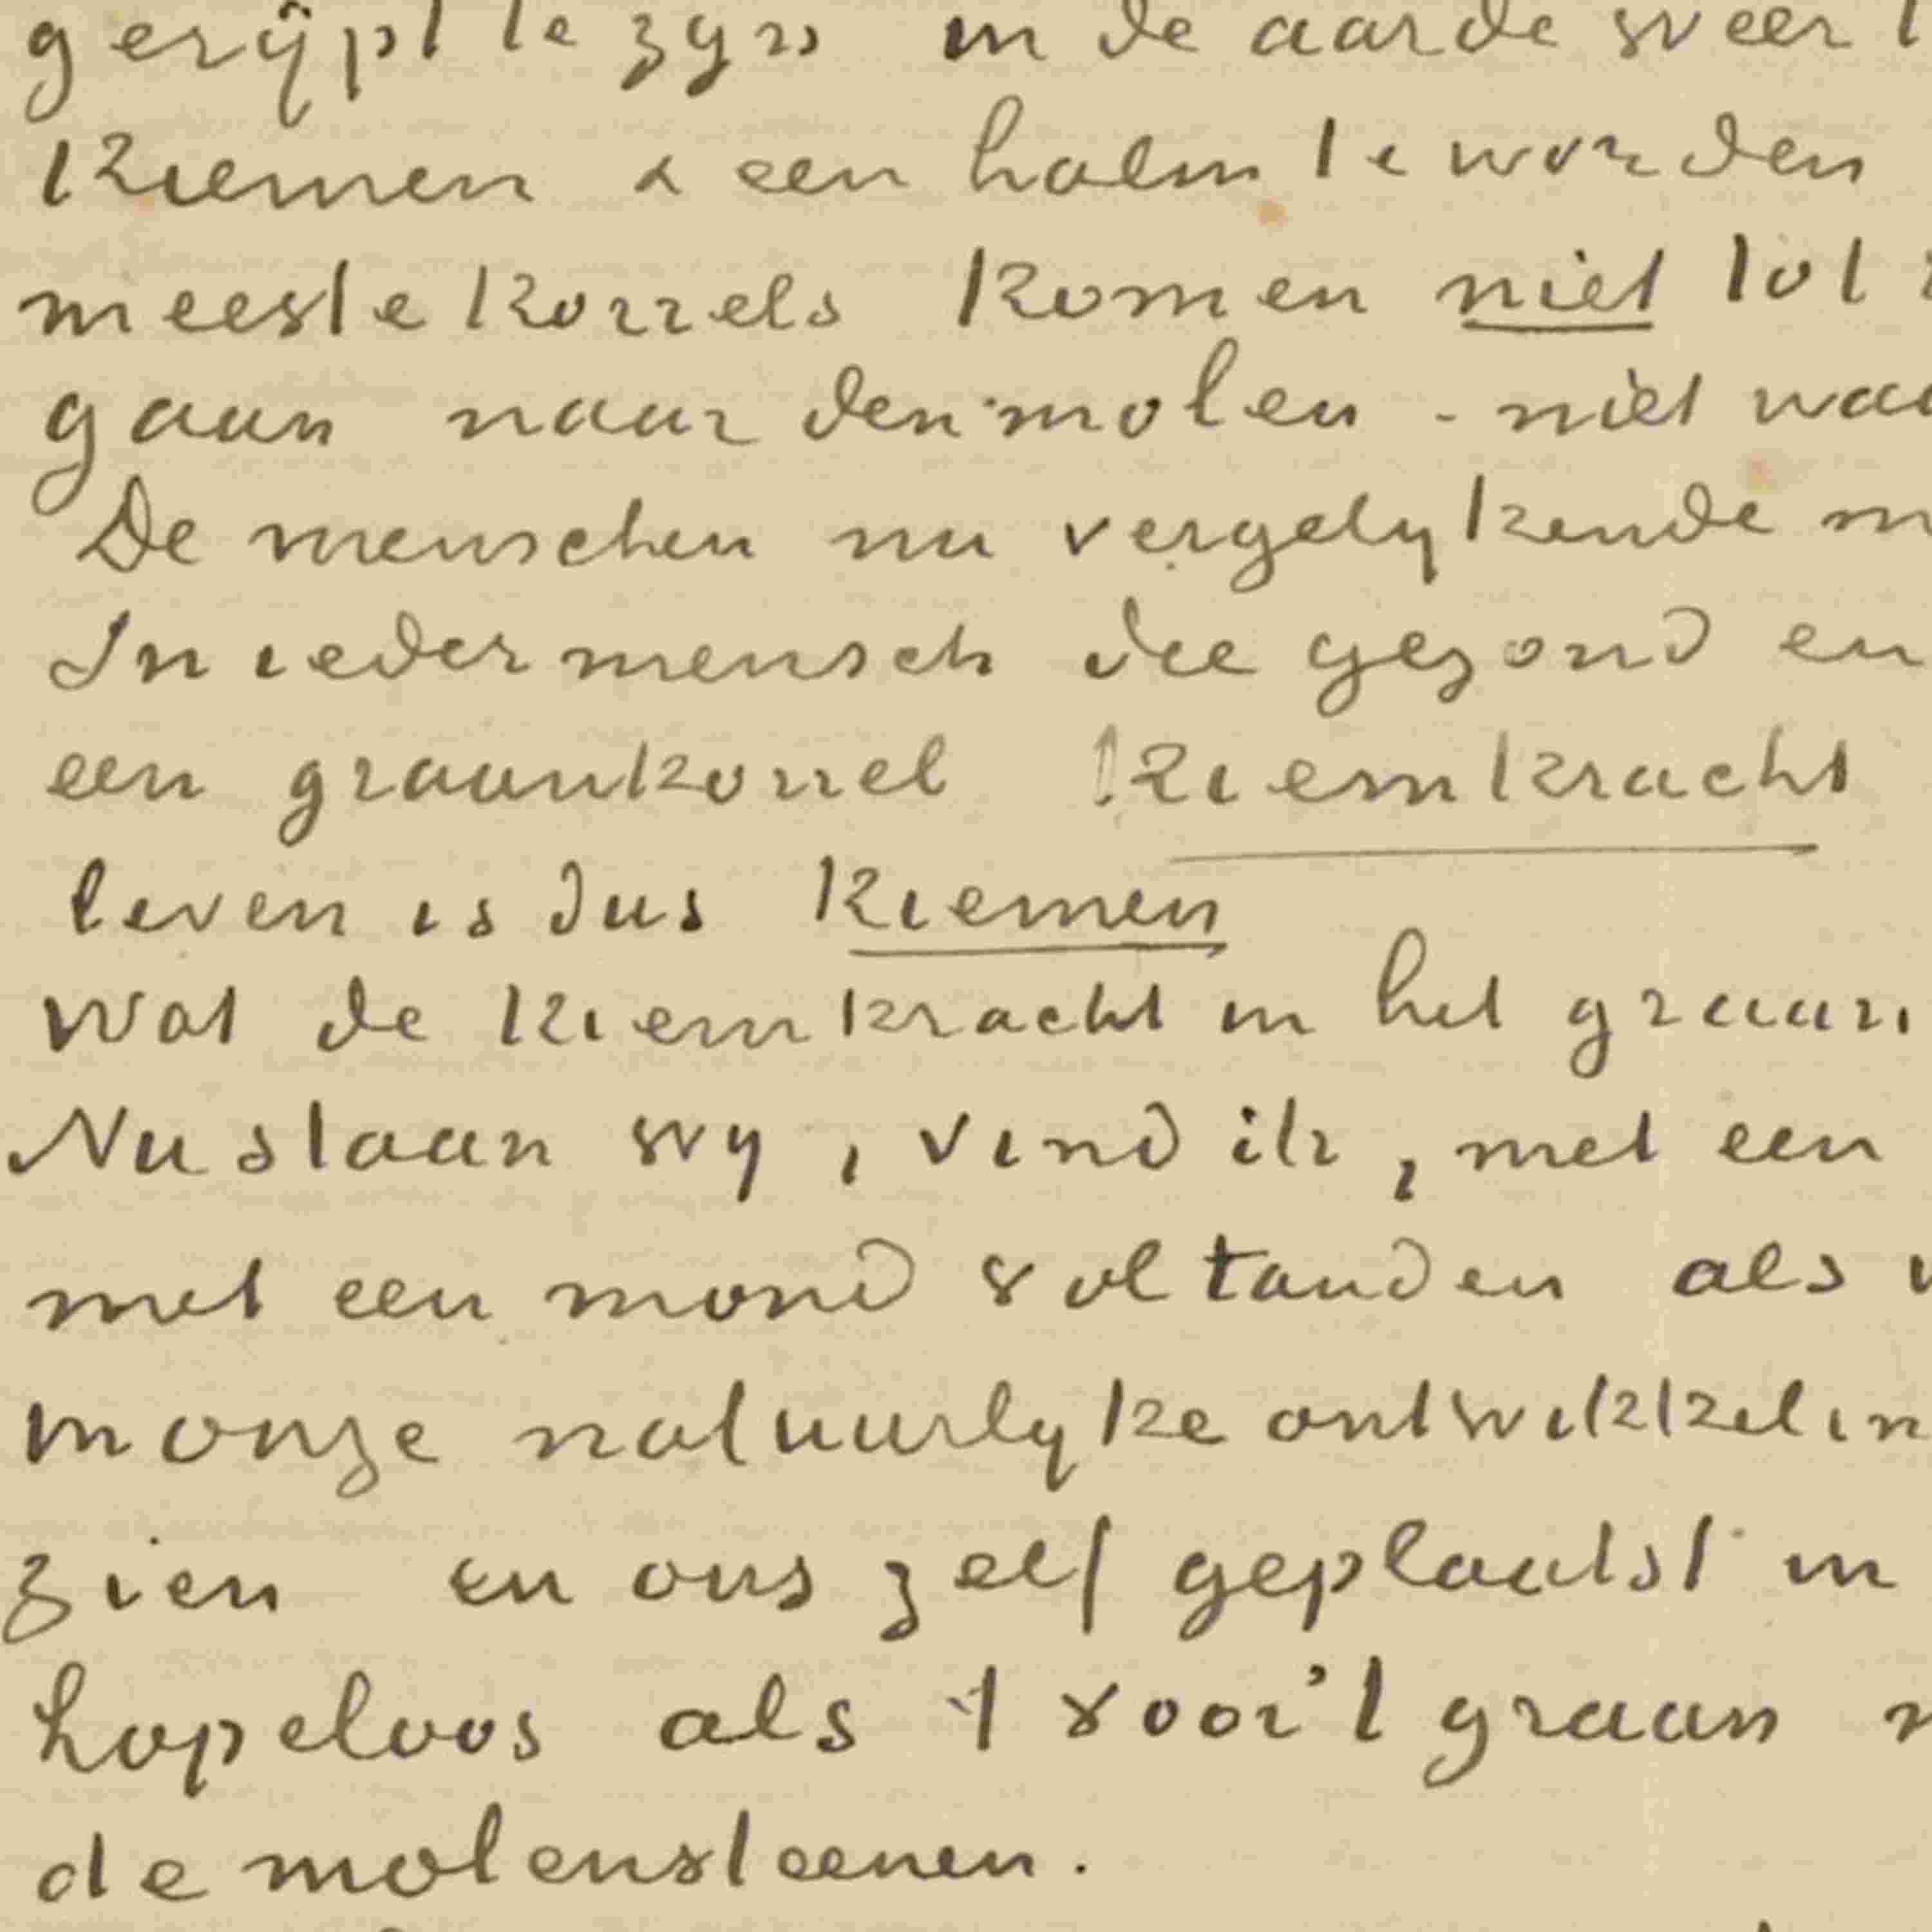 gerijpt te zyn in de aarde weer t
kiemen & een halm te worden
meeste korrels komen niet tot
gaan naar den molen - niet waa
De menschen nu vergelykende m
In ieder mensch die gezond en
een graankorrel kiemkracht
leven is dus kiemen
Wat de kiemkracht in het graan
Nu staan wy, vind ik, met een
met een mond vol tanden als w
in onze natuurlyke ontwikkelin
zien en ons zelf geplaatst in
hopeloos als 't voor 't graan m
de molensteenen.